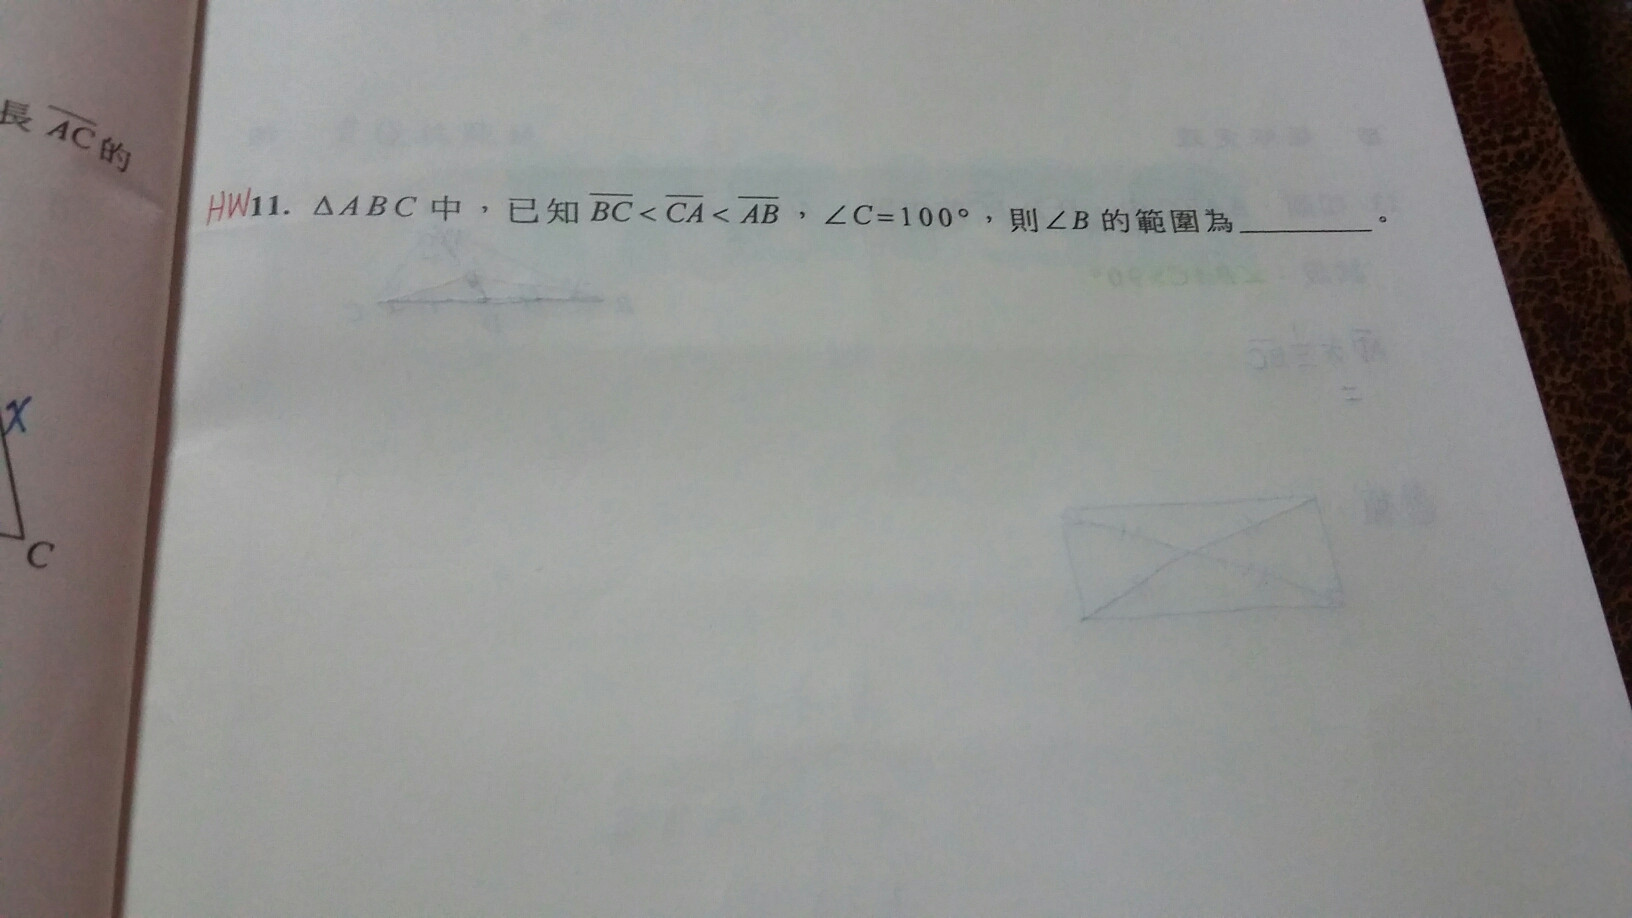 長 AC 的
HW11. ΔABC 中，已知 BC < CA < AB，∠C=100°，則∠B 的範圍為________。
x
C